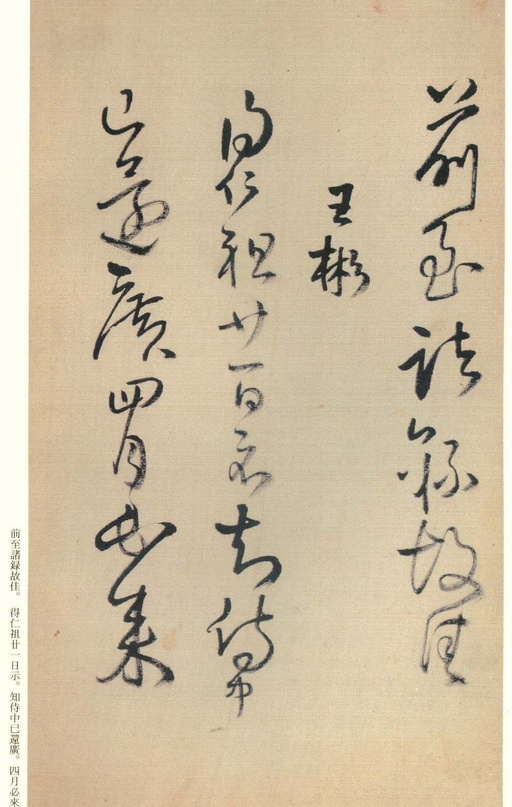 前至諸錄故佳
王彬
得仁祖廿一日示知侍中
已還廣四月必來
前至諸録故佳。 得仁祖廿一日示。知侍中已還廣。四月必來